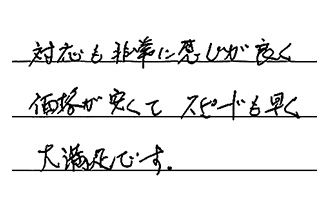 対応も非常に感じが良く
価格が安くて スピードも早く
大満足です.